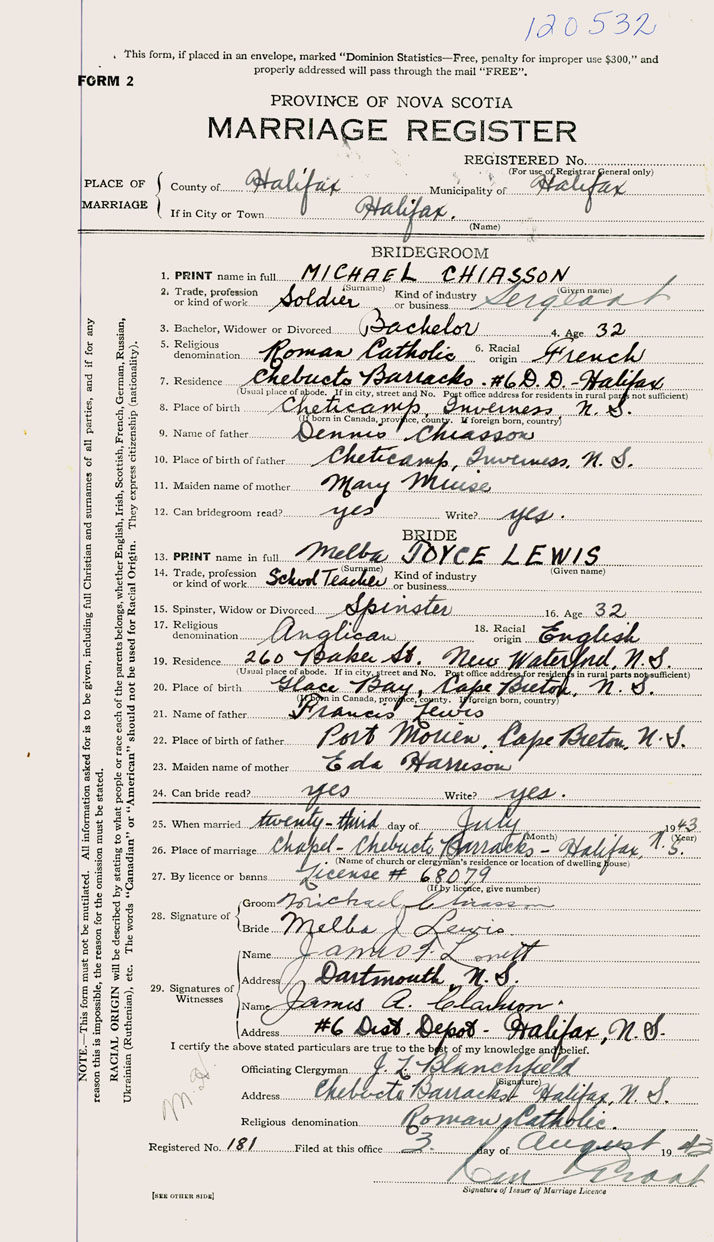 120532
This form, if placed in an envelope, marked “Dominion Statistics—Free, penalty for improper use $300,” and
properly addressed will pass through the mail “FREE”.
FORM 2
PROVINCE OF NOVA SCOTIA
MARRIAGE REGISTER
REGISTERED No.
(For use of Registrar General only)
PLACE OF MARRIAGE
County of Halifax Municipality of Halifax
If in City or Town Halifax.
(Name)
BRIDEGROOM
1. PRINT name in full MICHAEL CHIASSON
(Surname) (Given name)
2. Trade, profession or kind of work Soldier Kind of industry or business Sergeant
3. Bachelor, Widower or Divorced Bachelor 4. Age 32
5. Religious denomination Roman Catholic 6. Racial origin French
7. Residence Chebucto Barracks. #6 D.D. - Halifax
(Usual place of abode. If in city, street and No. Post office address for residents in rural parts not sufficient)
8. Place of birth Cheticamp, Inverness, N. S.
(If born in Canada, province, county. If foreign born, country)
9. Name of father Dennis Chiasson
10. Place of birth of father Cheticamp, Inverness, N. S.
11. Maiden name of mother Mary Muise
12. Can bridegroom read? yes Write? yes.
BRIDE
13. PRINT name in full Melba JOYCE LEWIS
(Surname) (Given name)
14. Trade, profession or kind of work School Teacher Kind of industry or business
15. Spinster, Widow or Divorced Spinster 16. Age 32
17. Religious denomination Anglican 18. Racial origin English
19. Residence 260 Baker St. New Waterford, N.S.
(Usual place of abode. If in city, street and No. Post office address for residents in rural parts not sufficient)
20. Place of birth Glace Bay, Cape Breton, N. S.
(If born in Canada, province, county. If foreign born, country)
21. Name of father Francis Lewis
22. Place of birth of father Port Morien, Cape Breton, N. S.
23. Maiden name of mother Eda Harrison
24. Can bride read? yes Write? yes.
25. When married twenty-third day of July 1943
(Month) (Year)
26. Place of marriage Chapel - Chebucto Barracks - Halifax, N.S.
(Name of church or clergyman's residence or location of dwelling house)
27. By licence or banns License # 68079
(If by licence, give number)
28. Signature of
Groom Michael Chiasson
Bride Melba J Lewis
29. Signatures of Witnesses
Name James
Address Dartmouth N. S.
Name James A. Clarkson.
Address #6 Dist. Depot - Halifax, N.S.
I certify the above stated particulars are true to the best of my knowledge and belief.
Officiating Clergyman J. L. Blanchfield
(Signature)
Address Chebucto Barracks Halifax, N. S.
Religious denomination Roman Catholic.
Registered No. 181 Filed at this office 3 day of August 1943
Signature of Issuer of Marriage Licence
[SEE OTHER SIDE]
NOTE.—This form must not be mutilated. All information asked for is to be given, including full Christian and surnames of all parties, and if for any
reason this is impossible, the reason for the omission must be stated.
RACIAL ORIGIN will be described by stating to what people or race each of the parents belongs, whether English, Irish, Scottish, French, German, Russian,
Ukrainian (Ruthenian), etc. The words “Canadian” or “American” should not be used for Racial Origin. They express citizenship (nationality).